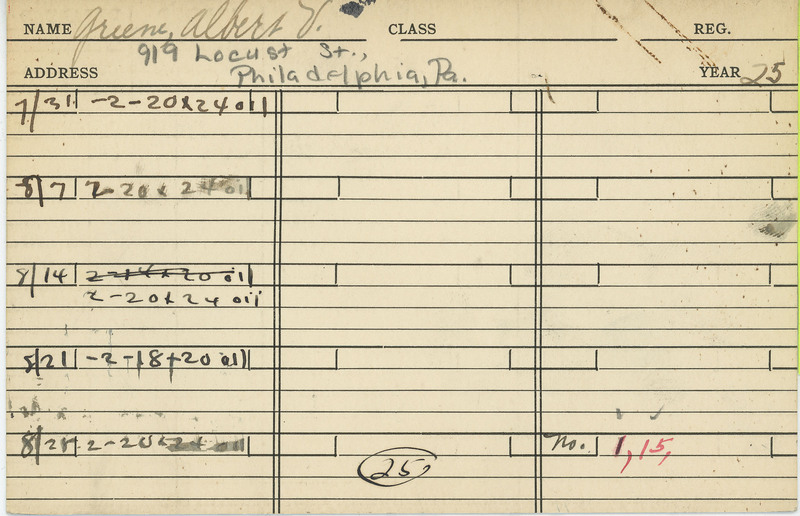 NAME Greene, Albert V. CLASS REG.
919 Locust St.,
ADDRESS Philadelphia, Pa. YEAR 25
7/31 -2-20x24 oil
8/7 2-20x24 oil
8/14 2-14x20 oil
2-20x24 oil
8/21 -2-18+20 oil
8/28 2-20x24 oil
No. 1, 15,
25